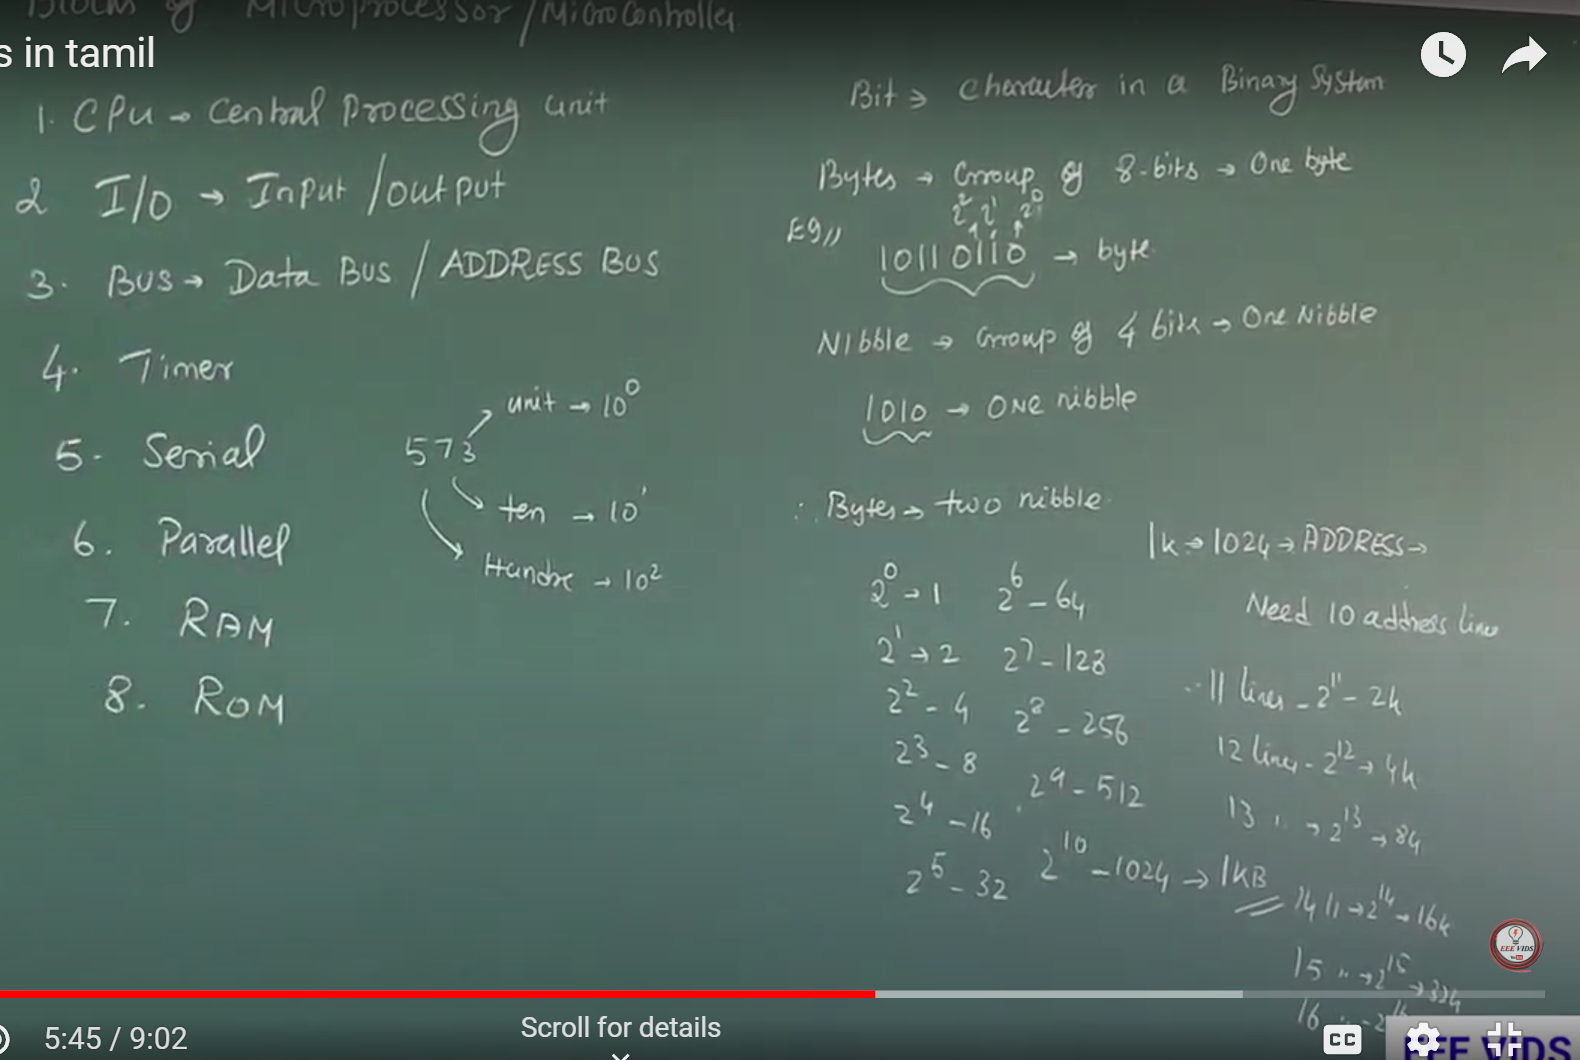 Blocks of Microprocessor / Microcontroller
s in tamil
1. CPU → Central Processing unit
2 I/O → Input / output
3. BUS → Data BUS / ADDRESS BUS
4. Timer
5. Serial
6. Parallel
7. RAM
8. ROM
573
unit → 10⁰
ten → 10¹
Hundre → 10²
Bit → Character in a Binary System
Bytes → Group of 8-bits → One byte
2² 2¹ 2⁰
Eg//
10110110 → byte
Nibble → Group of 4 bits → One Nibble
1010 → ONE nibble
∴ Bytes → two nibble
2⁰ → 1 2⁶ - 64
2¹ → 2 2⁷ - 128
2² - 4 2⁸ - 256
2³ - 8 2⁹ - 512
2⁴ - 16 2¹⁰ - 1024 → 1KB
2⁵ - 32
1k → 1024 → ADDRESS →
Need 10 address lines
11 lines - 2¹¹ - 2k
12 lines - 2¹² → 4k
13 " → 2¹³ → 8k
14 11 → 2¹⁴ → 16k
15 " → 2¹⁵ → 32k
16
EEE VIDS
5:45 / 9:02
Scroll for details
CC
EEE VIDS